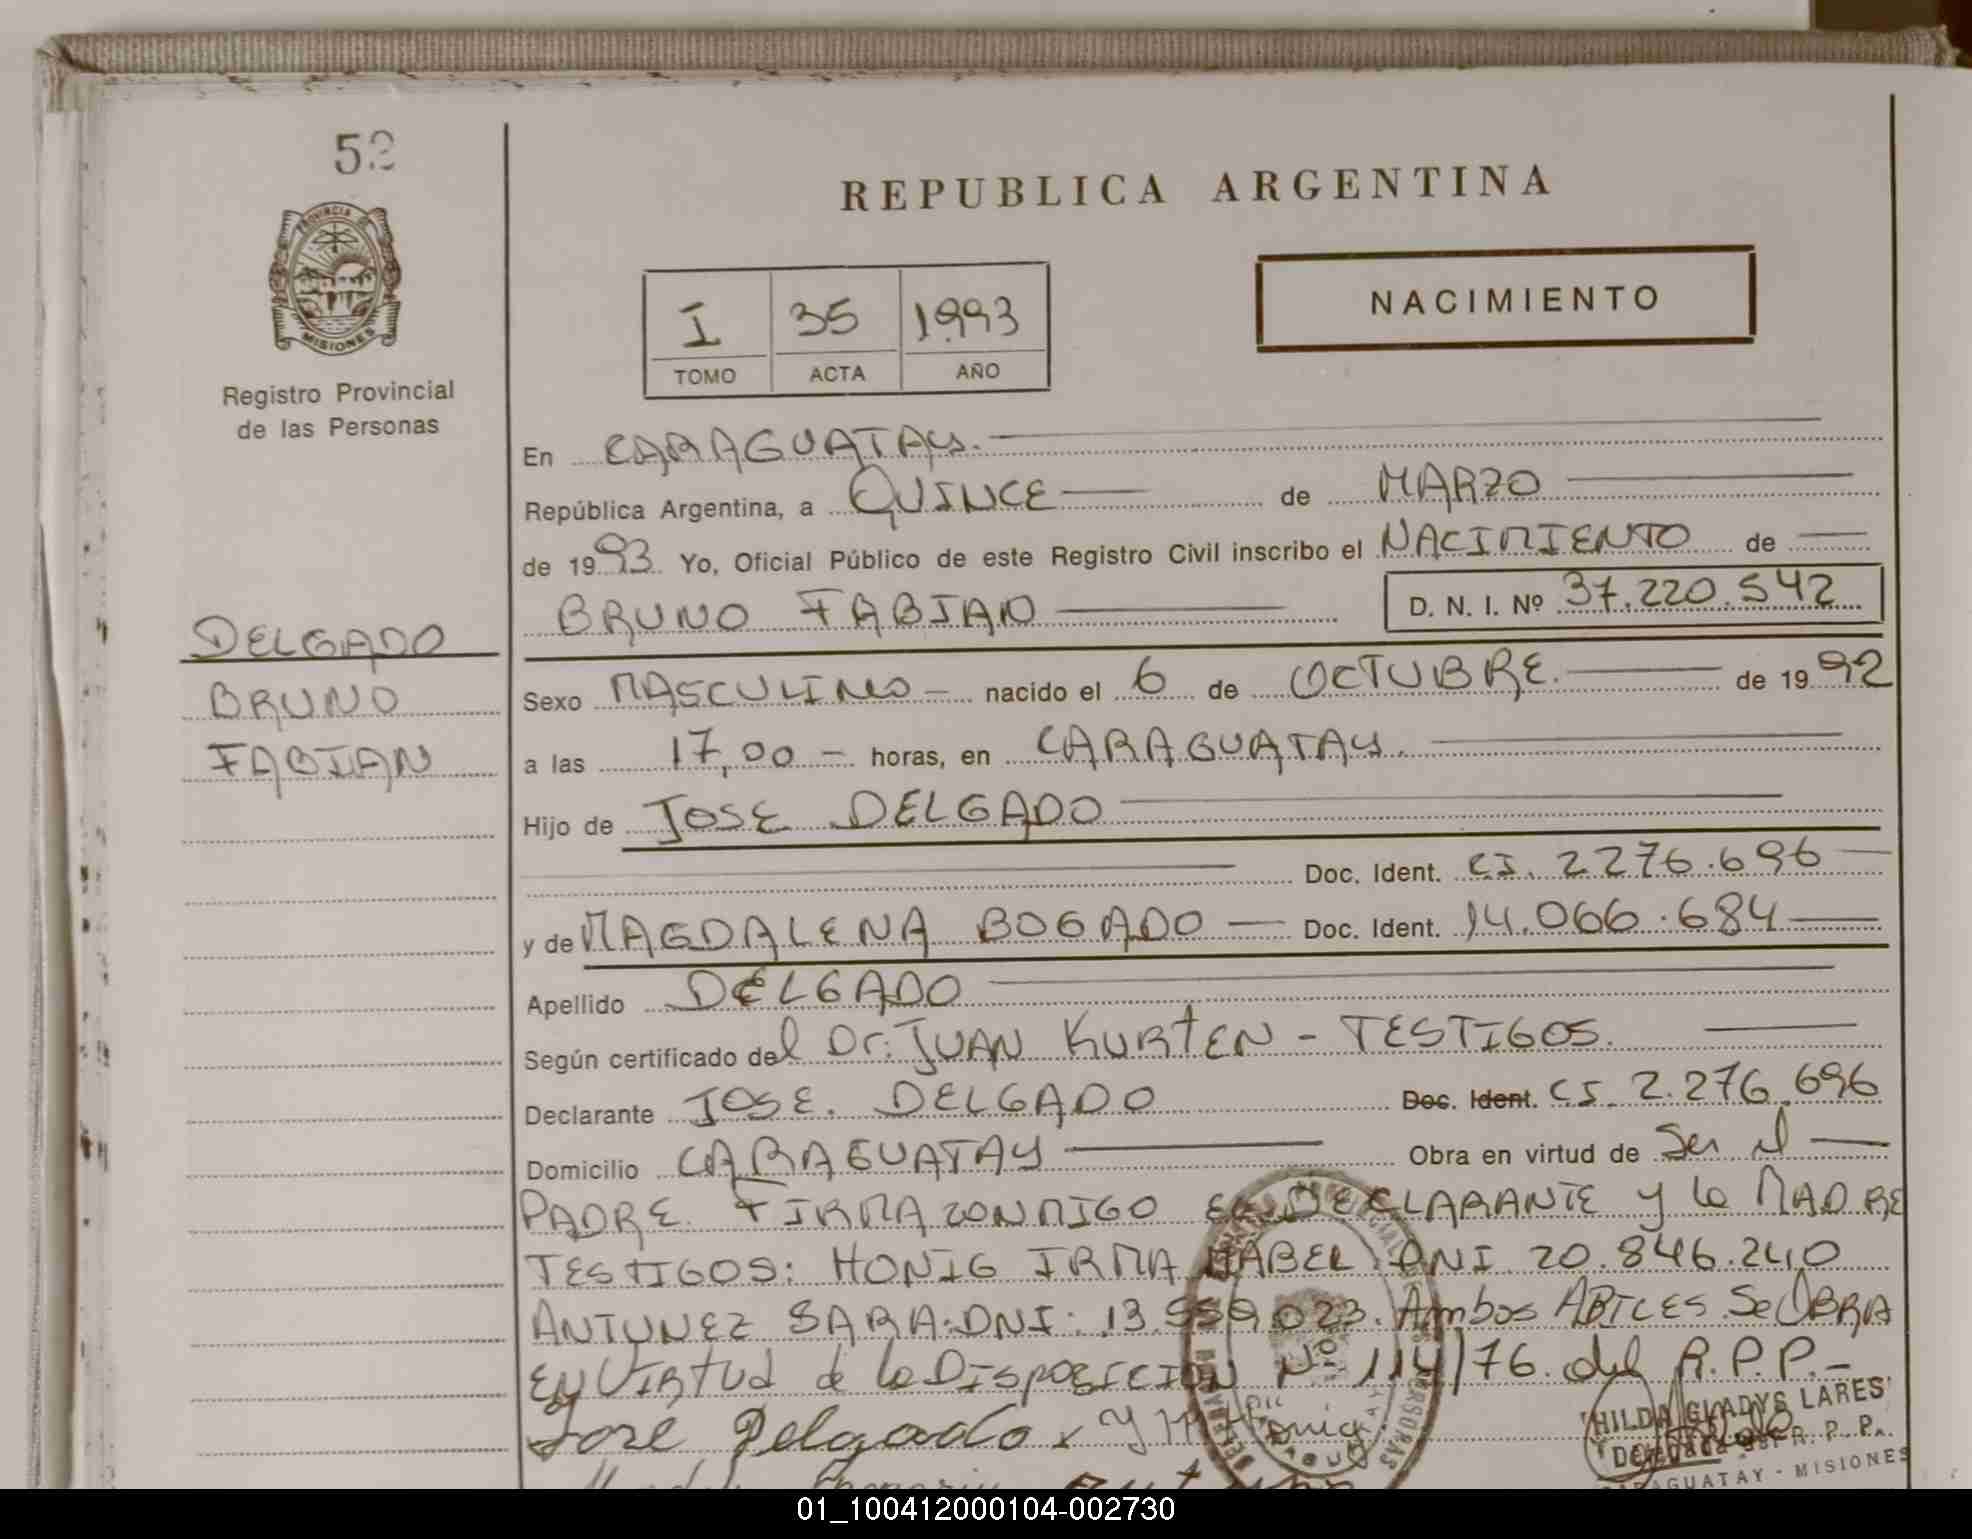 52
PROVINCIA
MISIONES
Registro Provincial
de las Personas
DELGADO
BRUNO
FABIAN
REPUBLICA ARGENTINA
I 35 1993
TOMO ACTA AÑO
NACIMIENTO
En CARAGUATAY.
República Argentina, a QUINCE de MARZO
de 1993. Yo, Oficial Público de este Registro Civil inscribo el NACIMIENTO de
BRUNO FABIAN D. N. I. Nº 37.220.542
Sexo MASCULINO - nacido el 6 de OCTUBRE. de 1992
a las 17,00 - horas, en CARAGUATAY.
Hijo de JOSE DELGADO
Doc. Ident. CI. 2276.696
y de MAGDALENA BOGADO - Doc. Ident. 14.066.684
Apellido DELGADO
Según certificado del Dr. JUAN KURTEN - TESTIGOS.
Declarante JOSE. DELGADO Doc. Ident. CI. 2.276.696
Domicilio CARAGUATAY Obra en virtud de Ser el
PADRE. FIRMA CONMIGO EL DECLARANTE y la MADRE
TESTIGOS: HONIG IRMA MABEL DNI 20.846.240
ANTUNEZ SARA. DNI: 13.559.023. Ambos ABILES. Se OBRA
EN VIRTUD de la DISPOSICION Nº 114/76. del R.P.P.-
José Delgado
HILDA GLADYS LARES
Delegada del R. P. P.
CARAGUATAY - MISIONES
01_100412000104-002730